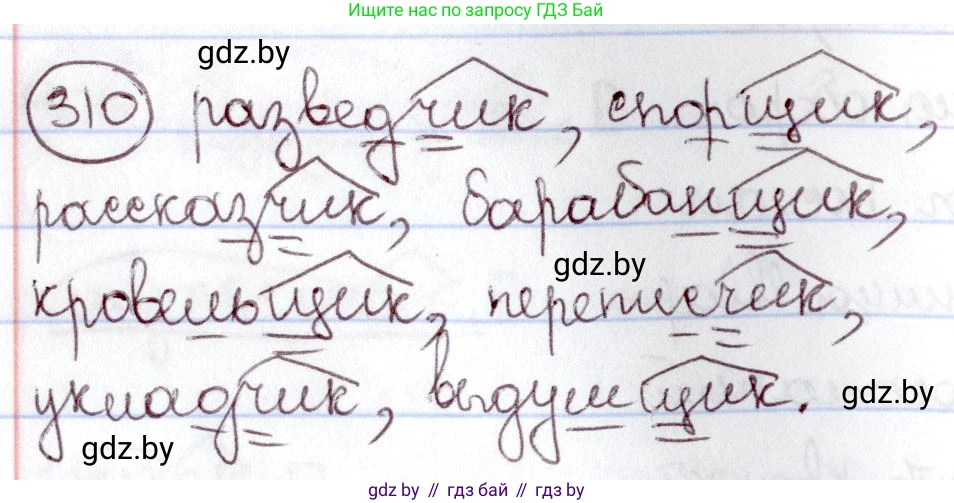 Ищите нас по запросу ГДЗ Бай
gdz.by
310 разведчик, спорщик,
рассказчик, барабанщик,
gdz.by
кровельщик, переписчик,
укладчик, выдумщик.
gdz.by
gdz.by
gdz.by // гдз бай // gdz by